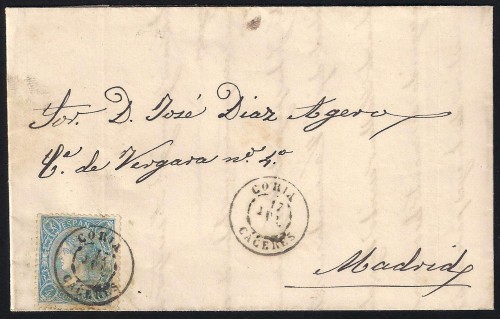 Sor. D. José Diaz Agero
Ca. de Vergara nº. 4º
CORIA
17
CACERES
ESPAÑA
CORIA
CACERES
Madrid